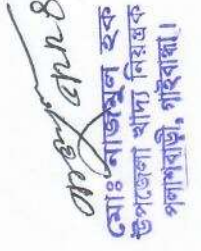 মোঃ নাজমুল হক
উপজেলা খাদ্য নিয়ন্ত্রক
পলাশবাড়ী, গাইবান্ধা।